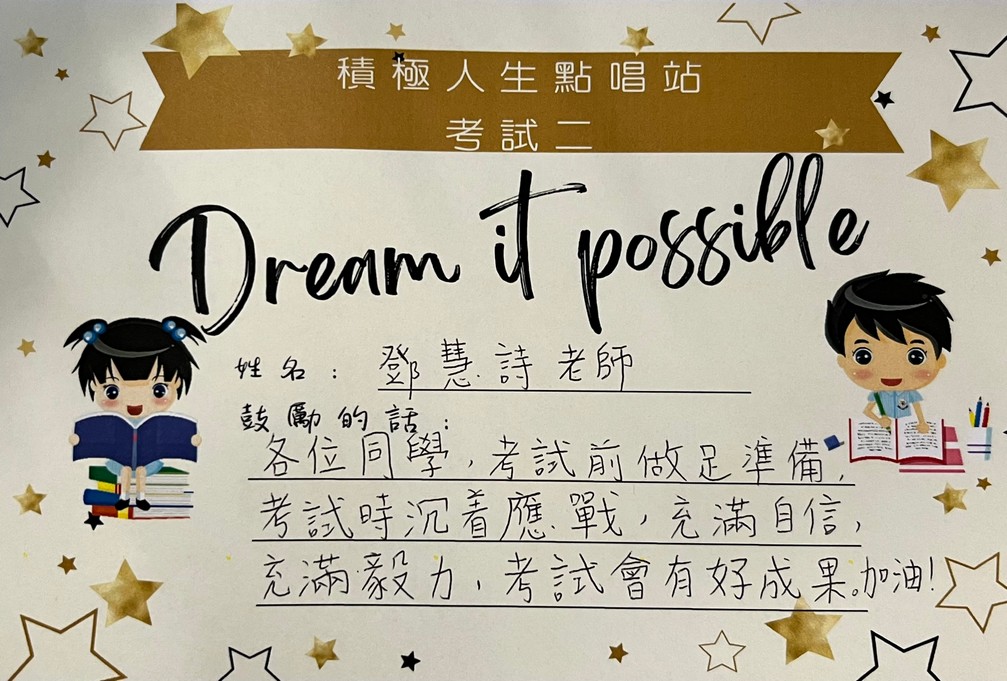 積極人生點唱站
考試二
Dream it possible
姓名：鄧慧詩老師
鼓勵的話：
各位同學，考試前做足準備，
考試時沉着應戰，充滿自信，
充滿毅力，考試會有好成果。加油！